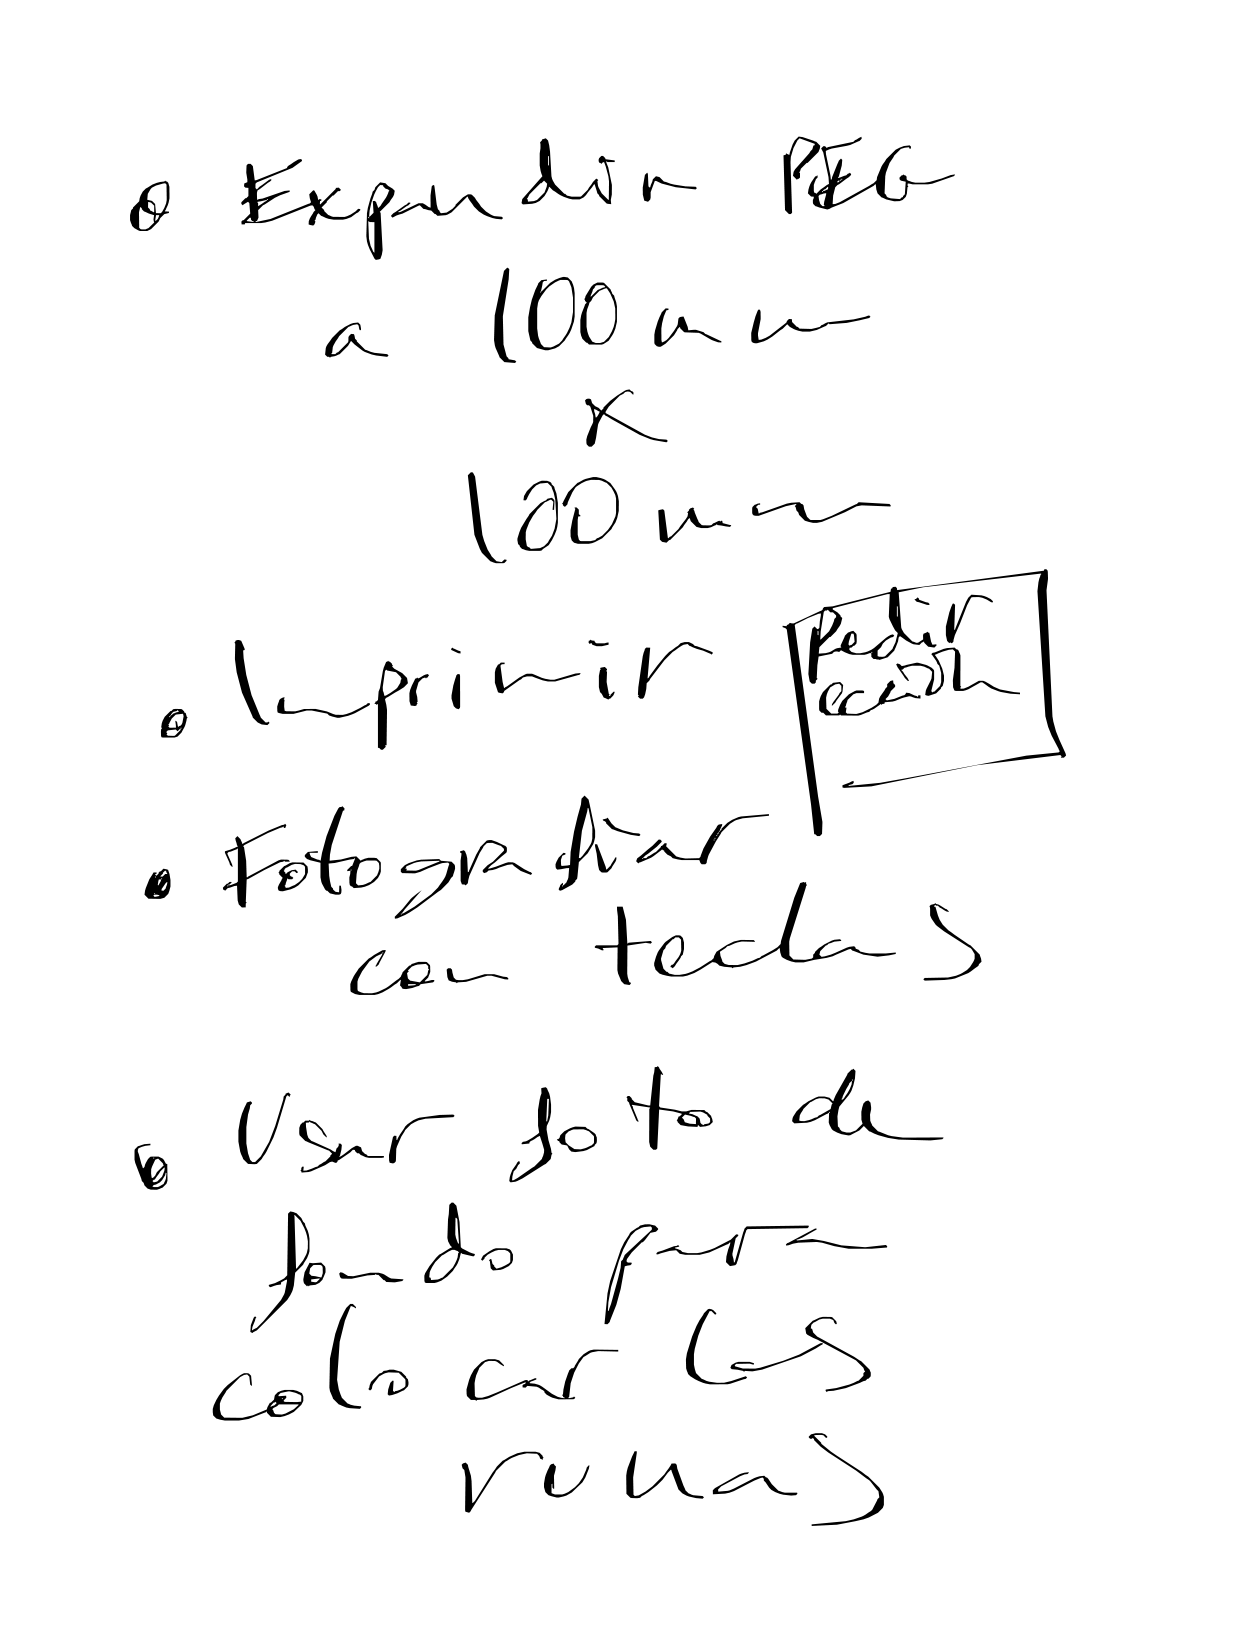 Expandir PEG
a 100 mm
x
100 mm
Imprimir
Pedir
Fotografiar
con teclas
Usar foto de
fondo para
colocar las
runas